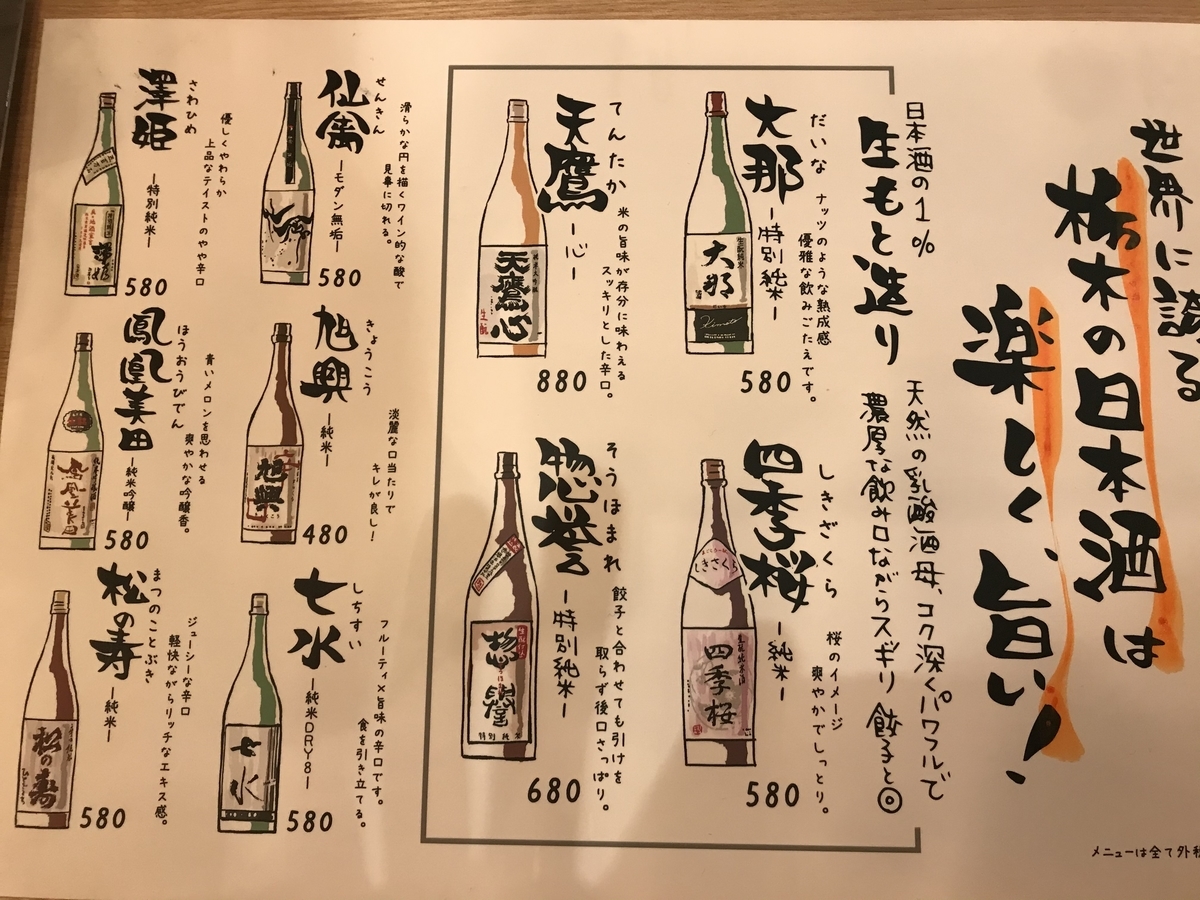 世界に誇る
栃木の日本酒は
楽しく、旨い!
日本酒の1%
生もと造り
天然の乳酸酒母、コク深くパワフルで
濃厚な飲み口ながらスギリ 餃子と◎
だいな
大那
ー特別純米ー
ナッツのような熟成感
優雅な飲みごたえです。
生酛純米
大那
Kimoto
580
しきざくら
四季桜
ー純米ー
桜のイメージ
爽やかでしっとり。
しきさくら
四季桜
580
てんたか
天鷹
ー心ー
米の旨味が存分に味わえる
スッキリとした辛口。
天鷹心
生酛
880
そうほまれ
惣誉
ー特別純米ー
餃子と合わせても引けを
取らず後口さっぱり。
惣譽
特別純米
680
せんきん
仙禽
ーモダン無垢ー
滑らかな円を描くワイン的な酸で
見事に切れる。
580
きょうこう
旭興
ー純米ー
淡麗な口当たりで
キレが良し!
旭興
480
しちすい
七水
ー純米DRY8ー
フルーティ×旨味の辛口です。
食を引き立てる。
七水
580
さわひめ
澤姫
ー特別純米ー
優しくやわらか
上品なテイストのやや辛口
澤姫
580
ほうおうびでん
鳳凰美田
ー純米吟醸ー
青いメロンを思わせる
爽やかな吟醸香。
鳳凰美田
580
まつのことぶき
松の寿
ー純米ー
ジューシーな辛口
軽快ながらリッチなエキス感。
松の寿
580
メニューは全て外税